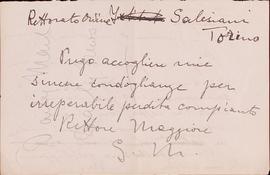 Rettorato Salesiani
Torino
Prego accogliere mie
sincere condoglianze per
irreparabile perdita compianto
Rettore Maggiore